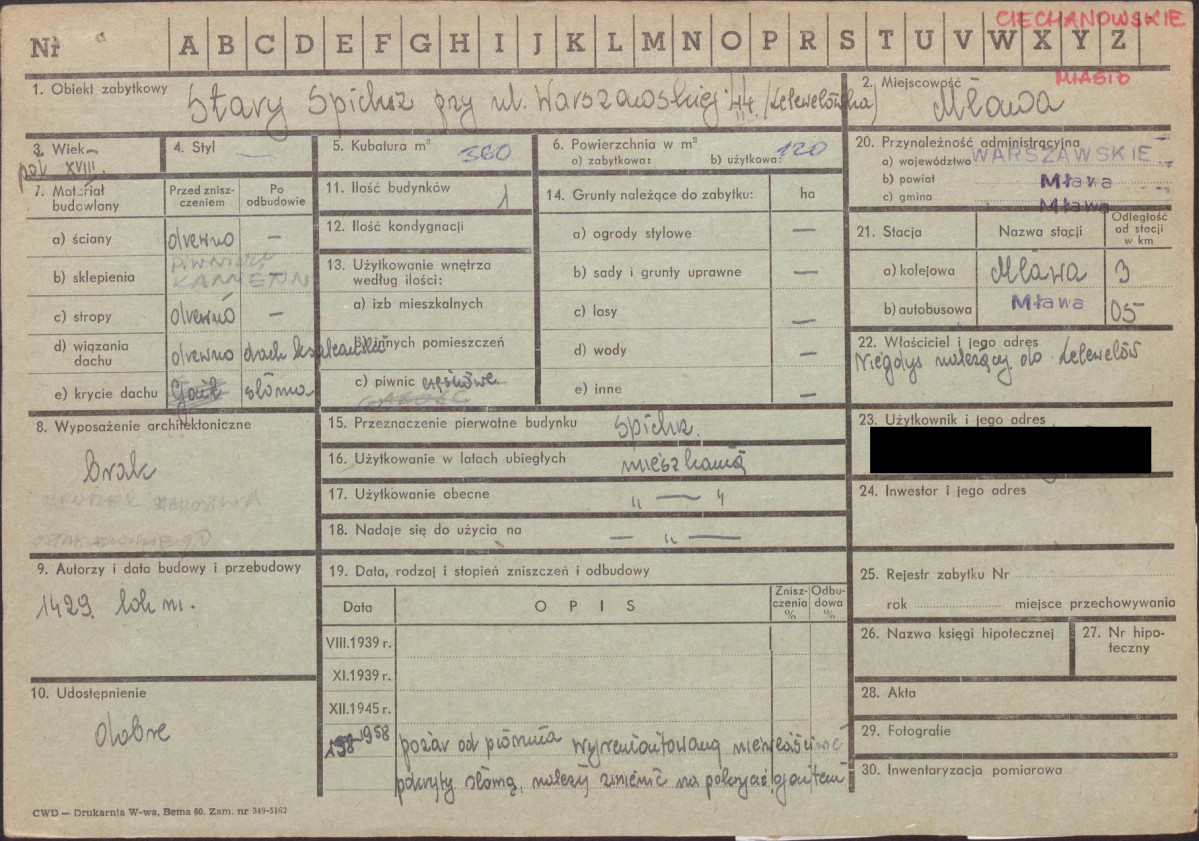 CIECHANOWSKIE
Nr A B C D E F G H I J K L M N O P R S T U V W X Y Z
MIASTO
1. Obiekt zabytkowy Stary Spichrz przy ul. Warszawskiej 44. (Lelewelówka)
2. Miejscowość Mława
3. Wiek poł. XVIII.
4. Styl —
5. Kubatura m³ 360
6. Powierzchnia w m²
a) zabytkowa: b) użytkowa: 120
20. Przynależność administracyjna
a) województwo WARSZAWSKIE
b) powiat Mława
c) gmina Mława
7. Materiał budowlany
Przed zniszczeniem
Po odbudowie
a) ściany drewno —
b) sklepienia PIWNICE KAMIEŃ —
c) stropy drewno —
d) wiązania dachu drewno dach
e) krycie dachu Gont słoma
11. Ilość budynków 1
12. Ilość kondygnacji
13. Użytkowanie wnętrza według ilości:
a) izb mieszkalnych
b) innych pomieszczeń
c) piwnic częściowe
14. Grunty należące do zabytku: ha
a) ogrody stylowe —
b) sady i grunty uprawne —
c) lasy —
d) wody —
e) inne —
21. Stacja Nazwa stacji Odległość od stacji w km
a) kolejowa Mława 3
b) autobusowa Mława 05
22. Właściciel i jego adres
Niegdyś należący do Lelewelów
8. Wyposażenie architektoniczne
brak
15. Przeznaczenie pierwotne budynku spichrz.
16. Użytkowanie w latach ubiegłych mieszkania
17. Użytkowanie obecne " — "
18. Nadaje się do użycia na — " —
23. Użytkownik i jego adres
24. Inwestor i jego adres
9. Autorzy i data budowy i przebudowy
1429. lok m.
19. Data, rodzaj i stopień zniszczeń i odbudowy
Data OPIS Zniszczenia % Odbudowa %
VIII.1939 r.
XI.1939 r.
XII.1945 r.
1958 pożar od pioruna wyremontowany niewłaściwie
pokryty słomą, należy zmienić na pokrycie gontem
10. Udostępnienie
dobre
25. Rejestr zabytku Nr
rok miejsce przechowywania
26. Nazwa księgi hipotecznej
27. Nr hipoteczny
28. Akta
29. Fotografie
30. Inwentaryzacja pomiarowa
CWD — Drukarnia W-wa, Bema 60. Zam. nr 349-5162